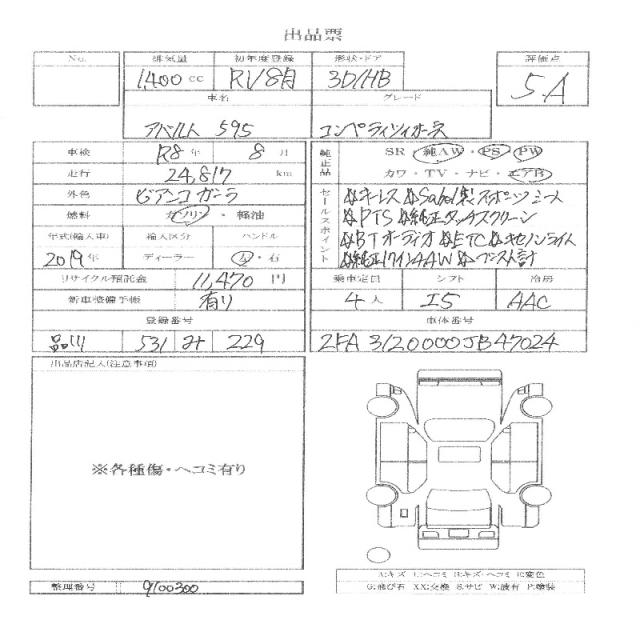 出品票
No. 排気量 初年度登録 形状・ドア 評価点
1,400 cc R1/8月 3D/HB 5.A
車名 グレード
アバルト 595 コンペティツィオーネ
車検 R8 年 8 月
走行 24,817 km
外色 ビアンコ ガーラ
燃料 ガソリン ・ 軽油
年式(輸入車) 輸入区分 ハンドル
2019 年 ディーラー 左・右
リサイクル預託金 11,470 円
新車整備手帳 有り
登録番号
品川 531 み 229
純正品 SR 純AW・PS・PW
カワ・TV・ナビ・エアB
セールスポイント
☆キーレス☆Sabelt製スポーツシート
☆PTS☆純正タッチスクリーン
☆BTオーディオ☆ETC☆キセノンライト
☆純正17インAAW☆ブースト計
乗車定員 シフト 冷房
4人 I5 AAC
車体番号
ZFA 3120000JB47024
出品店記入(注意事項)
※各種傷・ヘコミ有り
整理番号 9100300
A:キズ U:ヘコミ B:キズ・ヘコミ C:変色
G:飛び石 XX:交換 S:サビ W:波有 P:塗装